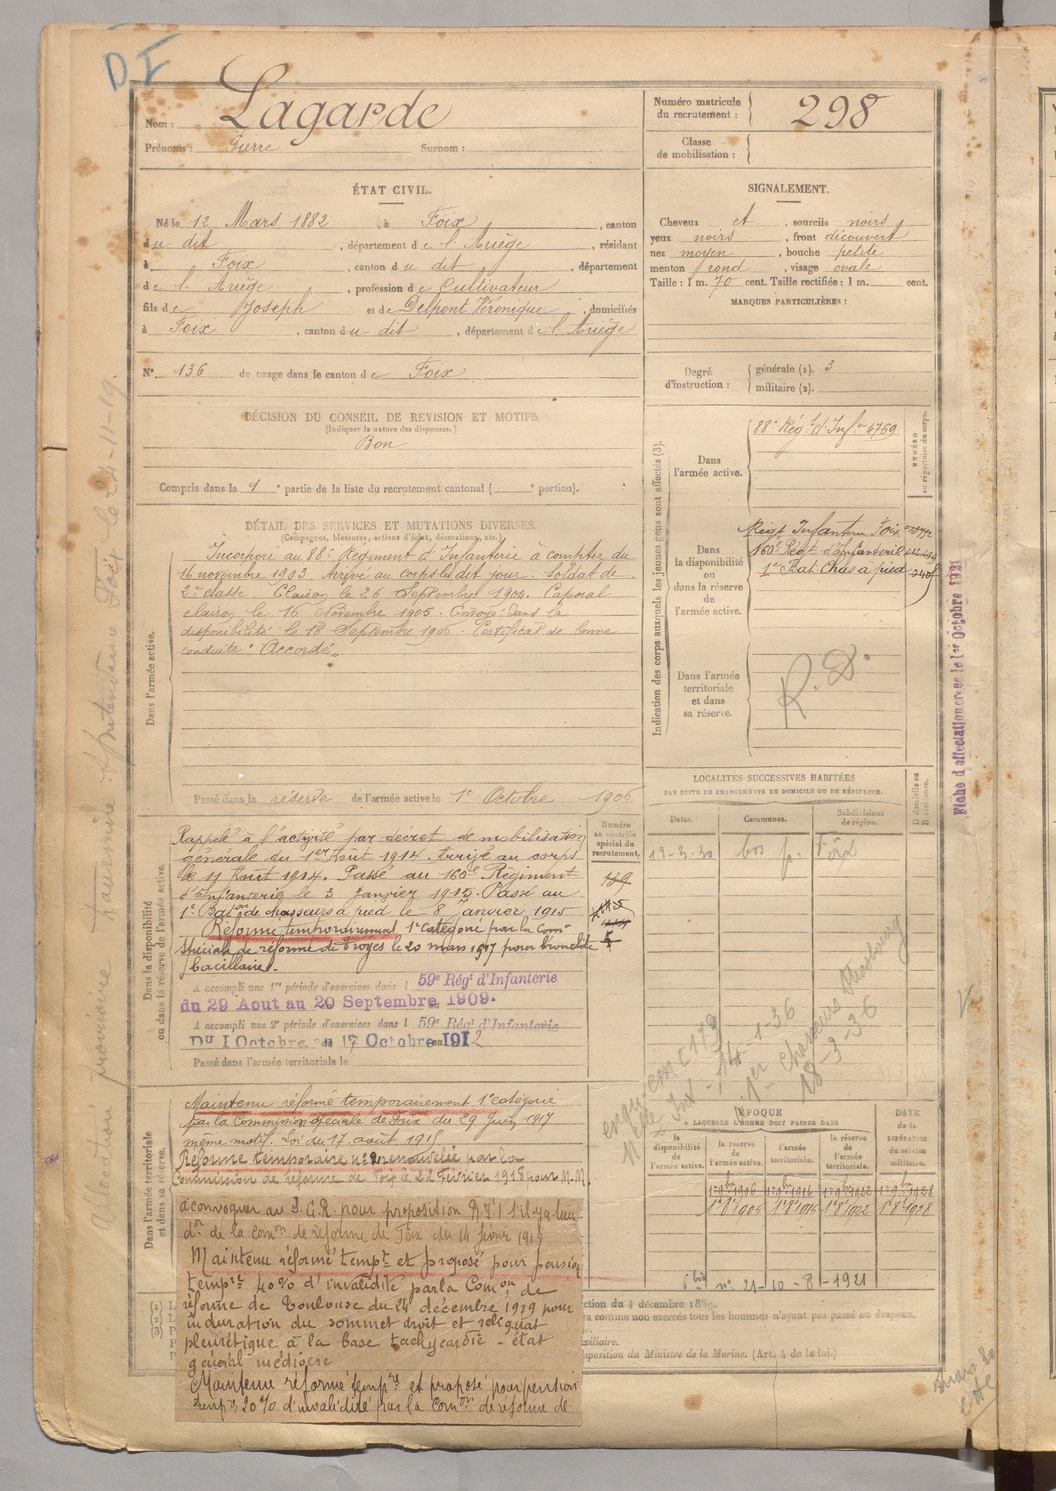 D I
Nom : Lagarde
Prénoms : Pierre Surnom :
Numéro matricule
du recrutement : 298
Classe
de mobilisation :
ÉTAT CIVIL.
Né le 12 Mars 1882, à Foix, canton
du dit, département de l'Ariège, résidant
à Foix, canton du dit, département
de l'Ariège, profession de Cultivateur
fils de Joseph et de Delpont Véronique, domiciliés
à Foix, canton du dit, département de l'Ariège
N° 136 de tirage dans le canton de Foix
SIGNALEMENT.
Cheveux et, sourcils noirs
yeux noirs, front découvert
nez moyen, bouche petite
menton rond, visage ovale
Taille : 1 m. 70 cent. Taille rectifiée : 1 m. cent.
MARQUES PARTICULIÈRES :
Degré
d'instruction :
générale (1). 3
militaire (2).
DÉCISION DU CONSEIL DE REVISION ET MOTIFS.
(Indiquer la nature des dispenses.)
Bon
Compris dans la 1e partie de la liste du recrutement cantonal ( e portion).
DÉTAIL DES SERVICES ET MUTATIONS DIVERSES.
(Campagnes, blessures, actions d'éclat, décorations, etc.)
Dans l'armée active.
Incorporé au 88e Régiment d'Infanterie à compter du
16 novembre 1903. Arrivé au corps le dit jour. Soldat de
2e classe. Clairon le 26 Septembre 1904. Caporal
clairon le 16 Novembre 1905. Envoyé dans la
disponibilité le 18 Septembre 1906. Certificat de bonne
conduite "Accordé"
Passé dans la réserve de l'armée active le 1er Octobre 1906
Indication des corps auxquels les jeunes gens sont affectés (3).
NUMÉRO
au répertoire du corps.
Dans
l'armée active.
88e Rég.t d'Inf.ie 4769
Dans
la disponibilité
ou
dans la réserve
de
l'armée active.
Régt Infanterie Foix
160e Régt d'Infanterie
1er Bat. Chas à pied
Dans l'armée
territoriale
et dans
sa réserve.
R. D.
Fiche d'affectation créée le 1er Octobre 1921
LOCALITÉS SUCCESSIVES HABITÉES
PAR SUITE DE CHANGEMENTS DE DOMICILE OU DE RÉSIDENCE.
Dates. Communes. Subdivisions
de région. D. domicile ou
R. résidence.
19-3-30 Foix
Dans la disponibilité
ou dans la réserve de l'armée active.
Numéro
au contrôle
spécial du
recrutement.
Rappelé à l'activité par décret de mobilisation
générale du 1er Août 1914. Arrivé au corps
le 11 Août 1914. Passé au 160e Régiment
d'Infanterie le 3 Janvier 1915. Passé au
1e Baton de chasseurs à pied le 8 Janvier 1915
Réformé temporairement 1e Catégorie par la Comon
spéciale de réforme de Troyes le 20 mars 1917 pour bronchite
bacillaire.
A accompli une 1re période d'exercices dans l 59e Régt d'Infanterie
du 29 Aout au 20 Septembre 1909.
A accompli une 2e période d'exercices dans l 59e Régt d'Infanterie
DU 1 Octobre au 17 Octobre 1912
Passé dans l'armée territoriale le
Dans l'armée territoriale
et dans sa réserve.
Maintenu réformé temporairement 1e catégorie
par la Commission spéciale de Foix du 29 Juin 1917
même motif. Loi du 17 août 1915
Réforme temporaire n°2 renouvelée par la
Commission de réforme de Foix le 22 Février 1918 pour M.M.
à convoquer au S.G.R. pour proposition R.T.1 s'il y a lieu
don de la comon de réforme de Foix du 14 févier 1919
Maintenu réformé tempre et proposé pour pension
tempre 40% d'invalidité par la Comon de
réforme de Toulouse du 24 décembre 1919 pour
induration du sommet droit et reliquat
pleurétique à la base tachycardie - état
général médiocre
Maintenu réformé tempre et proposé pour pension
tempre 20% d'invalidité par la Comon de réforme de
1er Chasseurs Strasbourg
18-3-36
14-1-36
ÉPOQUE
À LAQUELLE L'HOMME DOIT PASSER DANS
la
disponibilité
de
l'armée active.
la réserve
de
l'armée active.
l'armée
territoriale.
la réserve
de l'armée
territoriale.
DATE
de la
LIBÉRATION
du service
militaire.
1er 9bre 1906 1er 9bre 1916 1er 9bre 1922 1er 9bre 1928
1er 8e 1906 1er 8e 1916 1er 8e 1922 1er 8e 1928
6 bis n° 21-10-8-1921
ction du 4 décembre 1889.
a comme non exercés tous les hommes n'ayant pas passé au drapeau.
xiliaire.
sposition du Ministre de la Marine. (Art. 4 de la loi.)
Allocation provisoire Intendance Foix le 24-11-19.